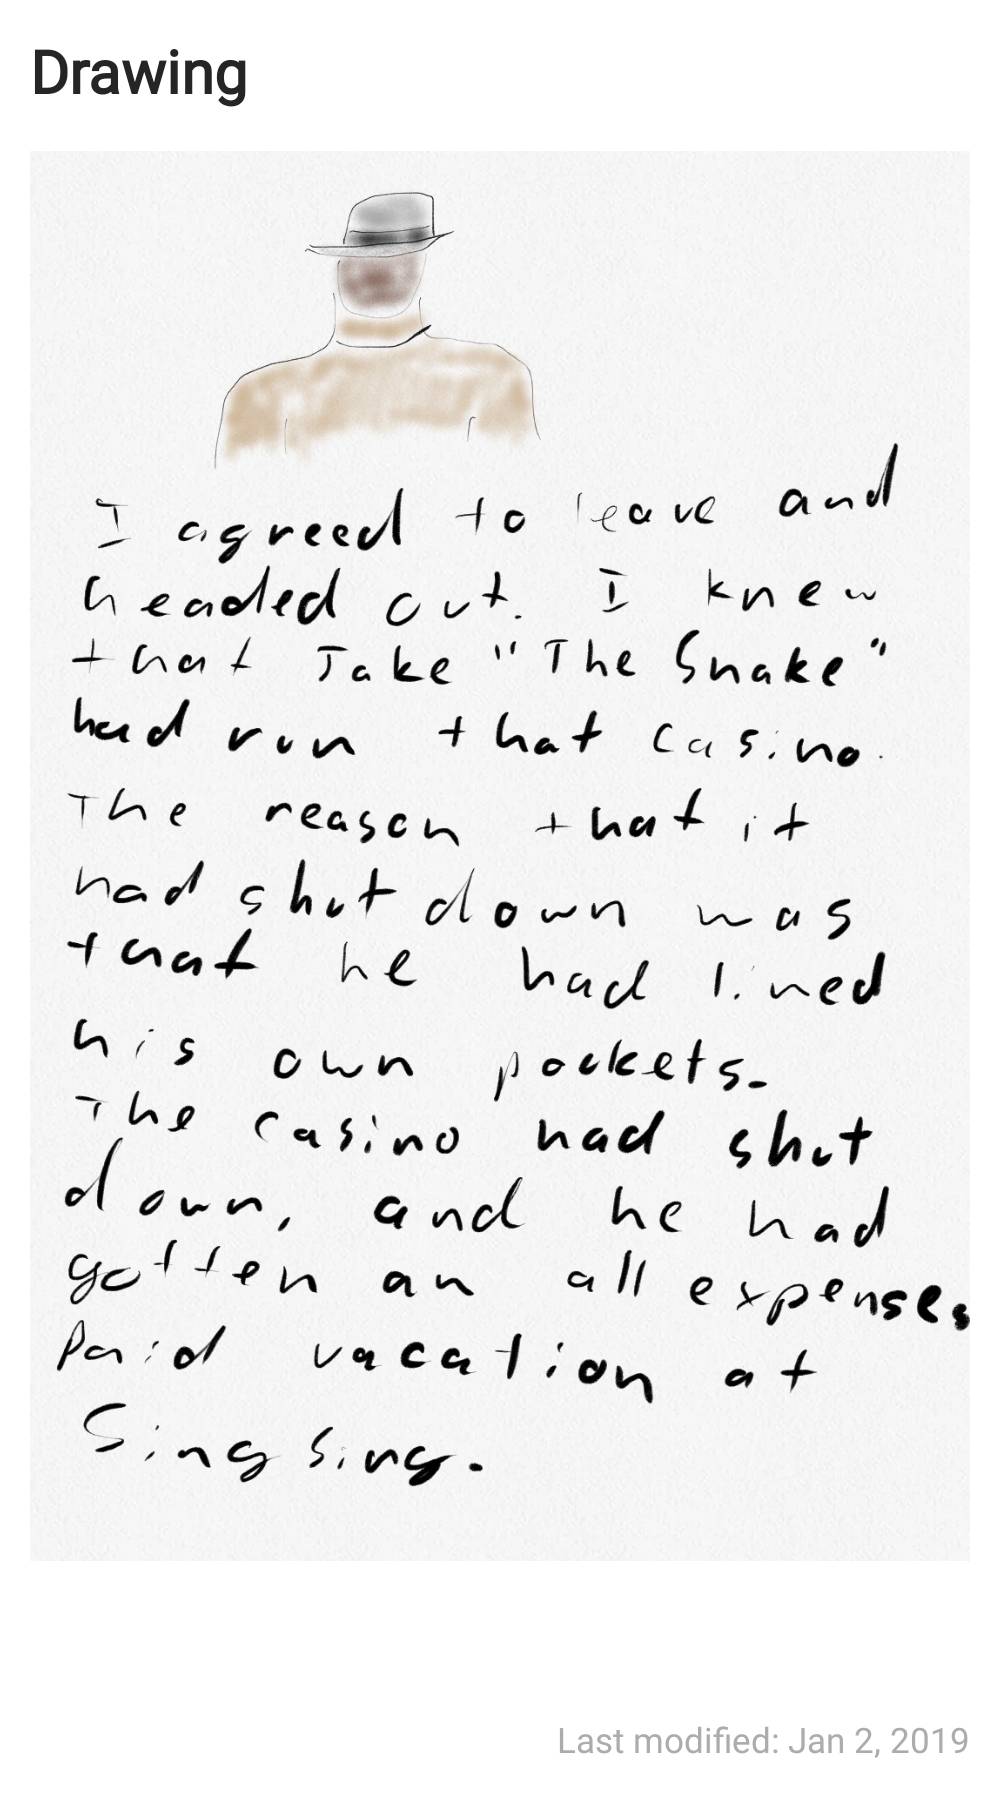 Drawing
I agreed to leave and
headed out. I knew
that Jake "The Snake"
had run that casino.
The reason that it
had shut down was
that he had lined
his own pockets.
The casino had shut
down, and he had
gotten an all expenses
paid vacation at
Sing Sing.
Last modified: Jan 2, 2019